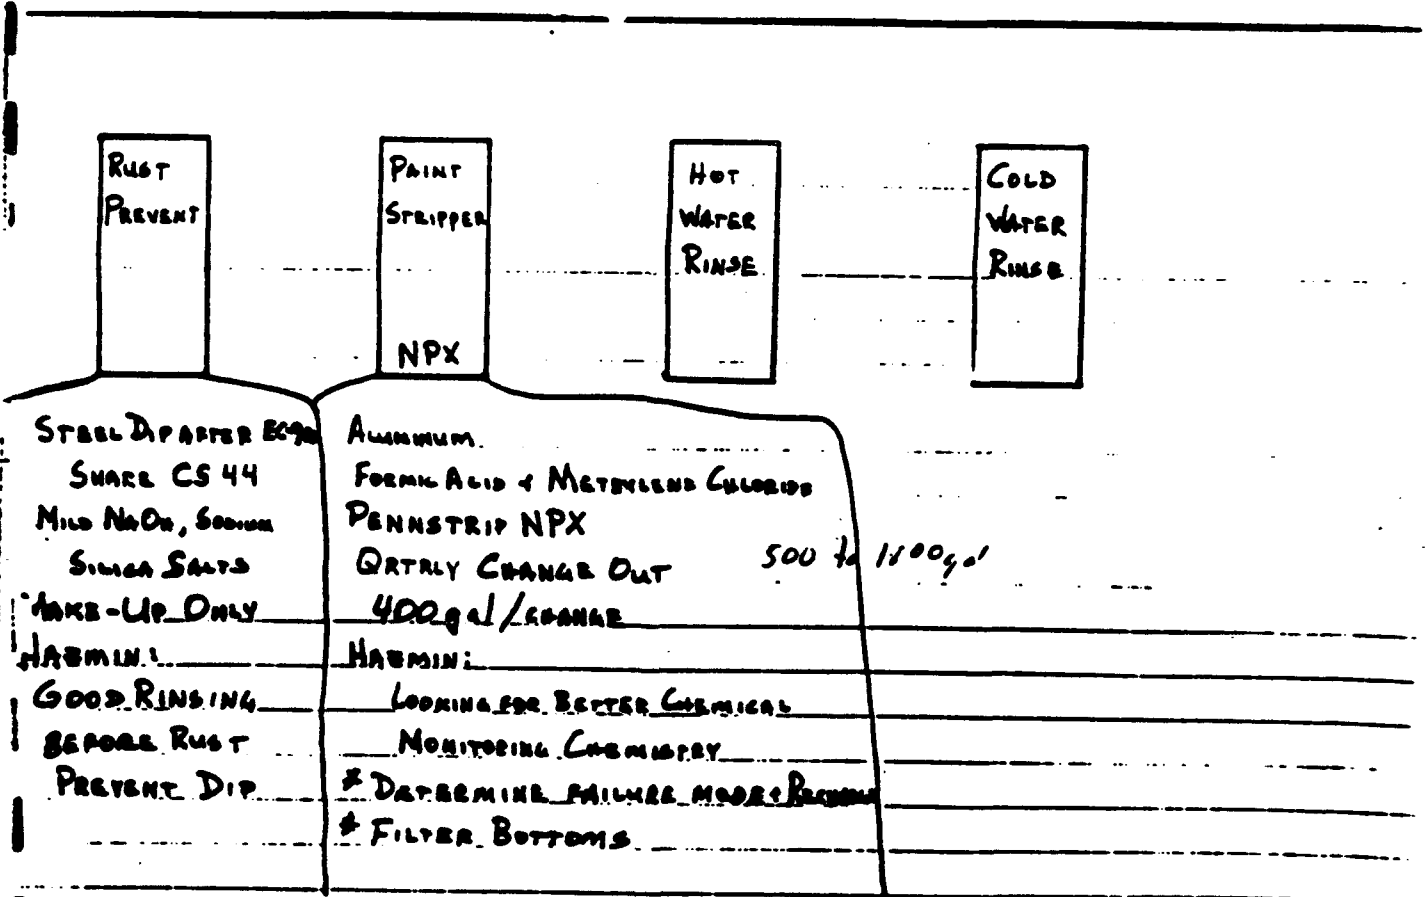 RUST
PREVENT
PAINT
STRIPPER
NPX
HOT
WATER
RINSE
COLD
WATER
RINSE
STEEL DIP AFTER
SHARE CS 44
MILD NaOH, SODIUM
SILICA SALTS
MAKE-UP ONLY
HAZMIN:
GOOD RINSING
BEFORE RUST
PREVENT DIP
ALUMINUM
FORMIC ACID & METHYLENE CHLORIDE
PENNSTRIP NPX
QRTRLY CHANGE OUT
500 to gal
400 gal/CHANGE
HAZMIN:
LOOKING FOR BETTER CHEMICAL
MONITORING CHEMISTRY
* DETERMINE FAILURE MODE &
* FILTER BOTTOMS